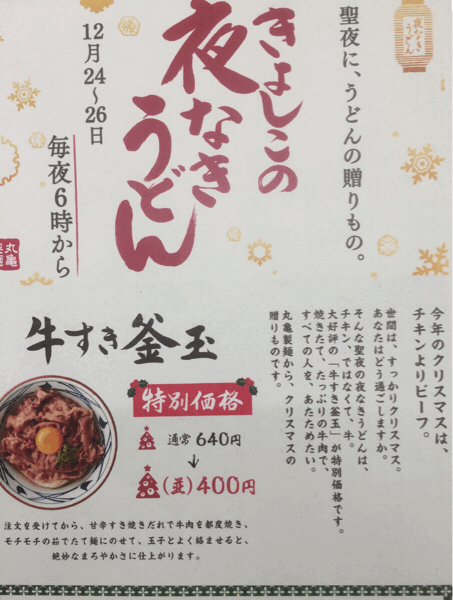 夜なきうどん
聖夜に、うどんの贈りもの。
きよしこの
夜なき
うどん
12月24~26日
毎夜6時から
丸亀製麺
今年のクリスマスは、
チキンよりビーフ。
世間は、すっかりクリスマス。
あなたはどう過ごしますか。
そんな聖夜の夜なきうどんは、
チキン、ではなくて、牛。
大好評の「牛すき釜玉」が特別価格です。
焼きたて、たっぷりの牛肉で、
すべての人を、あたためたい。
丸亀製麺から、クリスマスの
贈りものです。
牛すき釜玉
特別価格
通常640円
↓
(並)400円
注文を受けてから、甘辛すき焼きだれで牛肉を都度焼き、
モチモチの茹でたて麺にのせて、玉子とよく絡ませると、
絶妙なまろやかさに仕上がります。